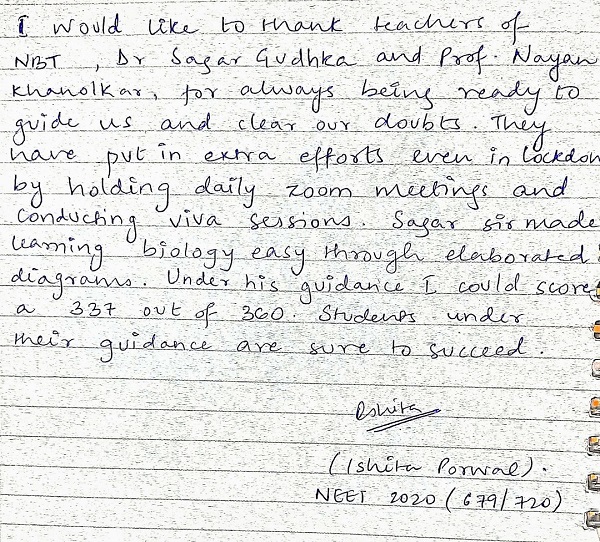 I would like to thank teachers of
NBT, Dr Sagar Gudhka and Prof. Nayan
Khanolkar, for always being ready to
guide us and clear our doubts. They
have put in extra efforts even in lockdon
by holding daily zoom meetings and
conducting viva sessions. Sagar sir made
learning biology easy through elaborated
diagrams. Under his guidance I could score
a 337 out of 360. Students under
their guidance are sure to succeed.
Ishita
(Ishita Porwal).
NEET 2020 (679/720)